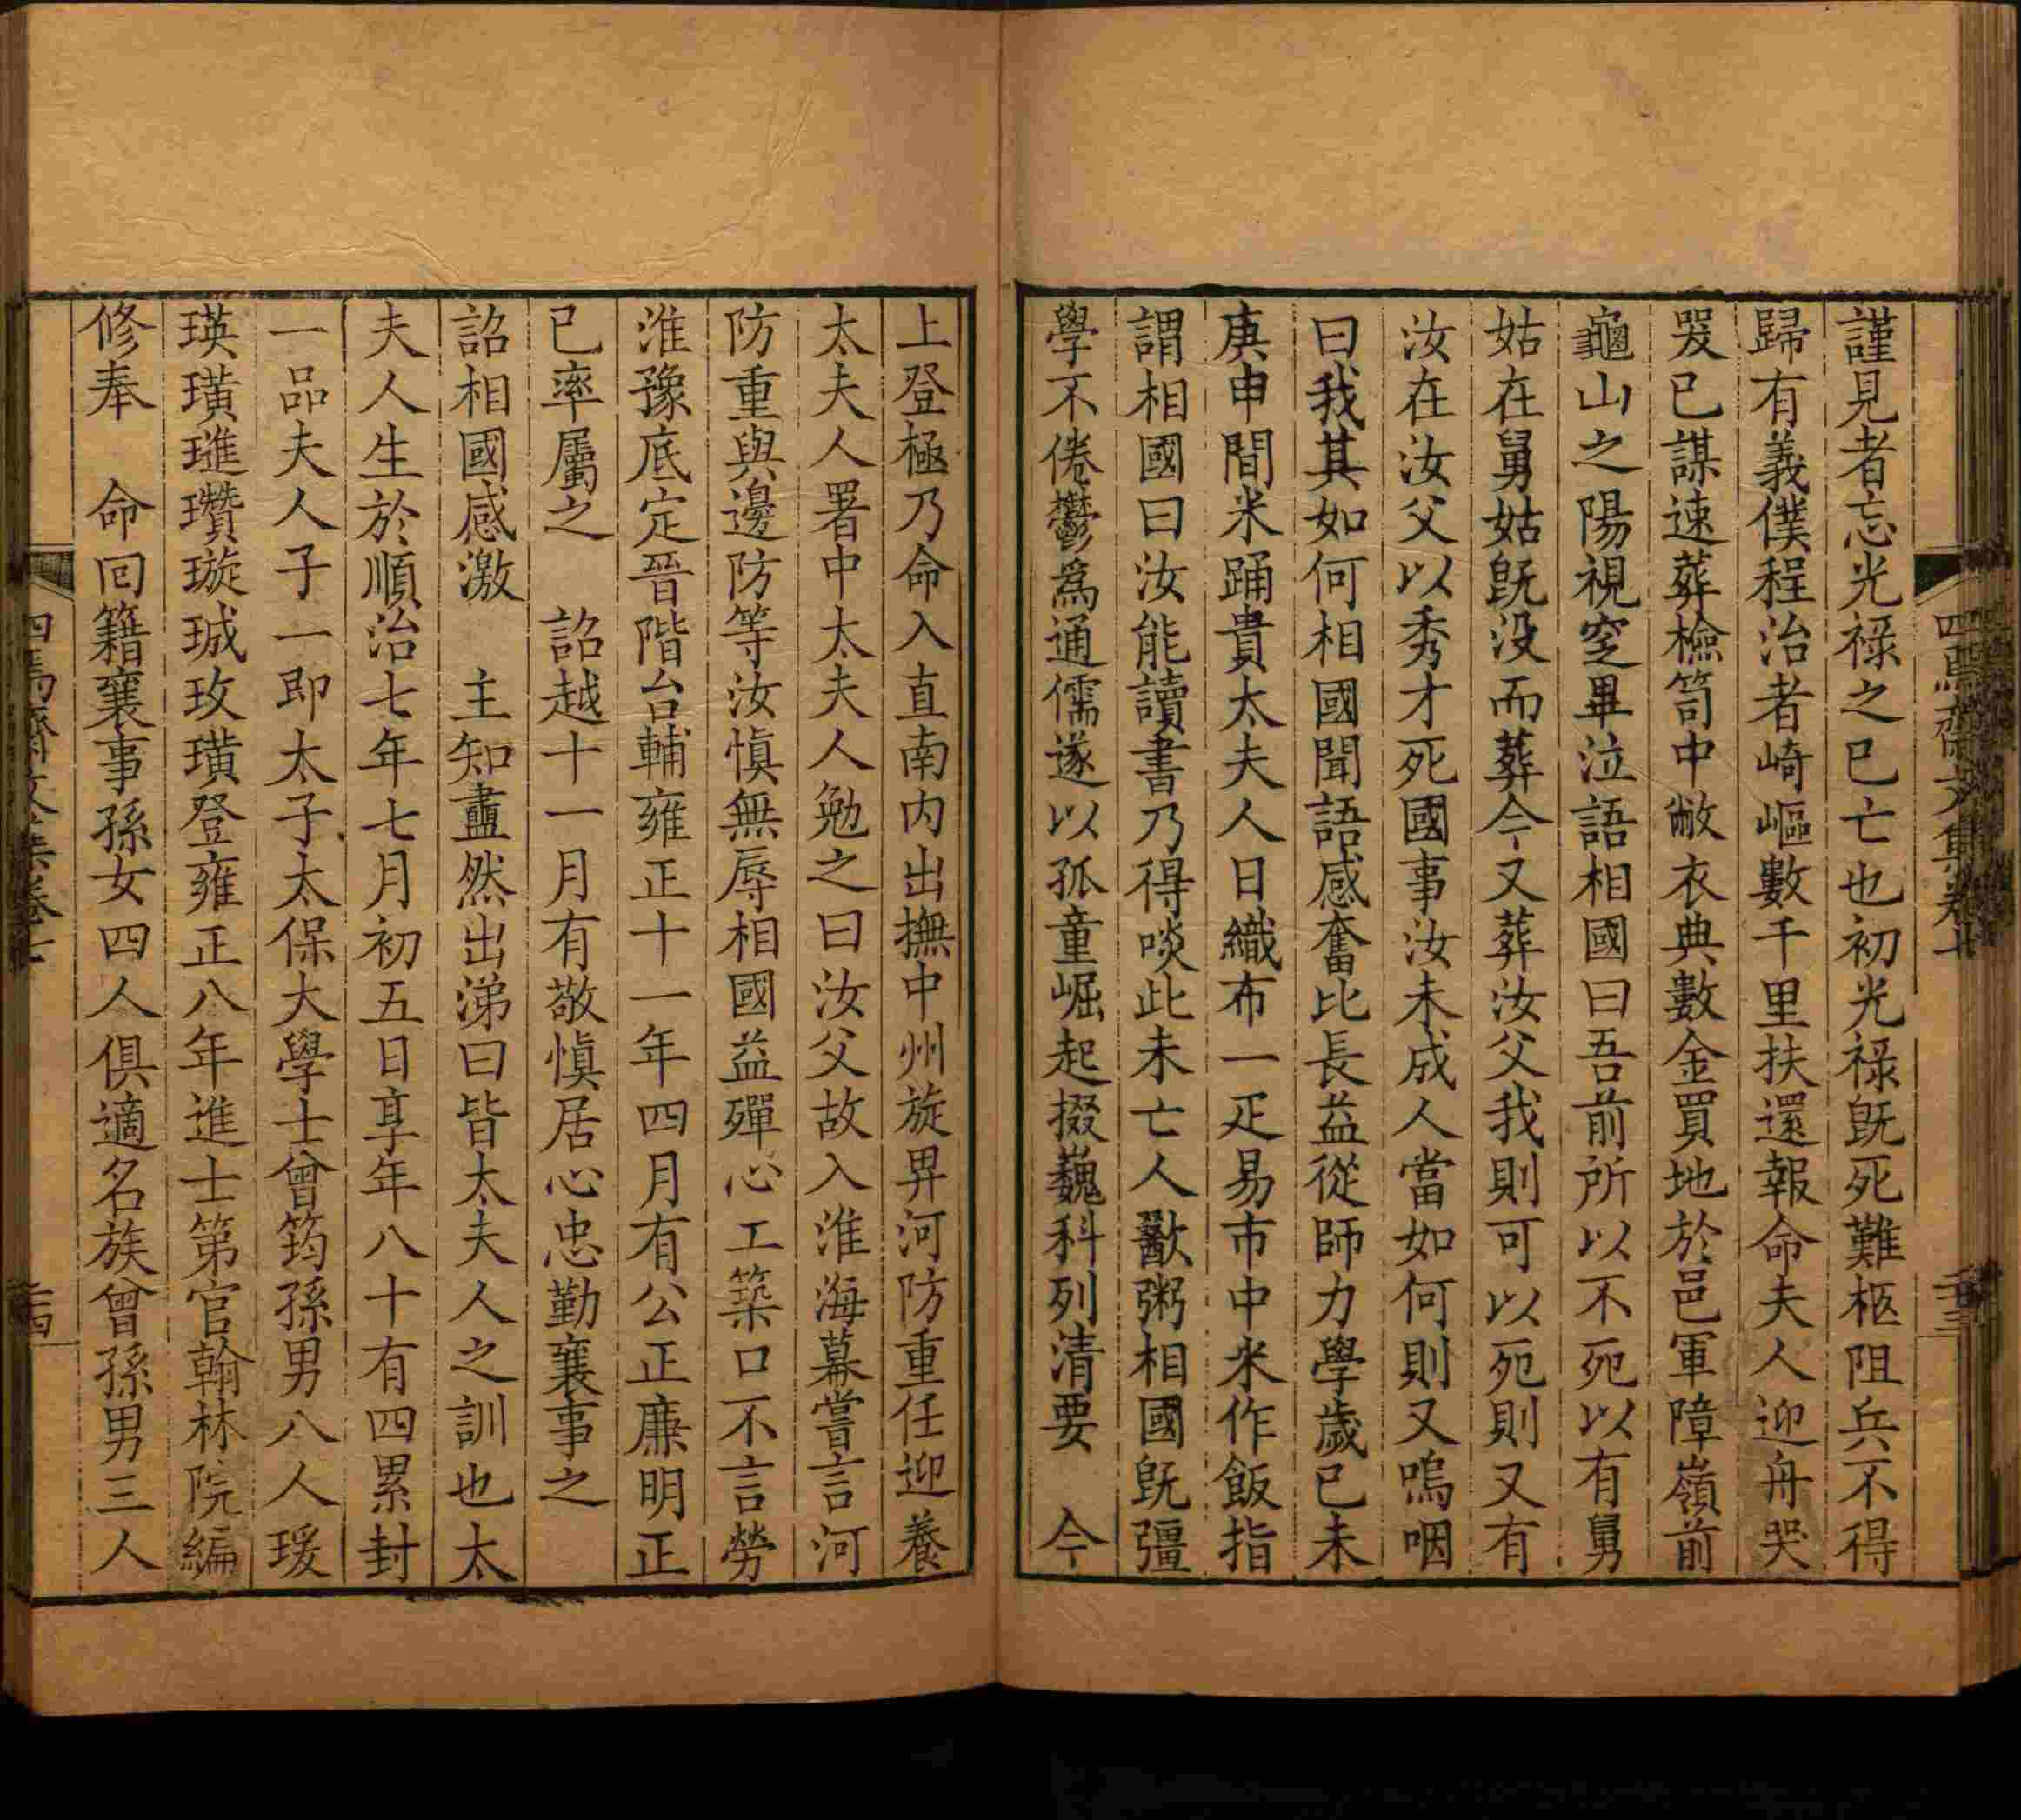 謹見者忘光祿之已亡也初光祿旣死難柩阻兵不得
歸有義僕程治者崎嶇數千里扶還報命夫人迎舟哭
哭已謀速葬檢笥中敝衣典數金買地於邑軍障嶺前
龜山之陽視窆畢泣語相國曰吾前所以不死以有舅
姑在舅姑旣没而葬今又葬汝父我則可以死則又有
汝在汝父以秀才死國事汝未成人當如何則又嗚咽
曰我其如何相國聞語感奮比長益從師力學歲已未
庚申間米踊貴太夫人日織布一疋易市中米作飯指
謂相國曰汝能讀書乃得啖此未亡人歠粥相國旣彊
學不倦鬱爲通儒遂以孤童崛起掇巍科列清要　今
四焉齋文集卷七
二十三
上登極乃命入直南内出撫中州旋畀河防重任迎養
太夫人署中太夫人勉之曰汝父故入淮海幕嘗言河
防重與邊防等汝愼無辱相國益殫心工築口不言勞
淮豫底定晉階台輔雍正十一年四月有公正廉明正
已率屬之　詔越十一月有敬愼居心忠勤襄事之
詔相國感激　主知衋然出涕曰皆太夫人之訓也太
夫人生於順治七年七月初五日享年八十有四累封
一品夫人子一即太子太保大學士曾筠孫男八人瑗
瑛璜璡瓚璇珹玫璜登雍正八年進士第官翰林院編
修奉　命回籍襄事孫女四人俱適名族曾孫男三人
四焉齋文集卷七
二十四